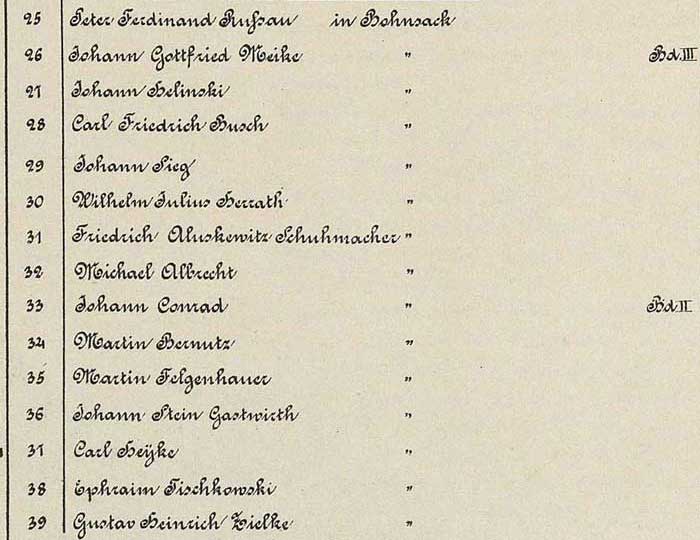 25 Peter Ferdinand Rußau in Bohnsack
26 Johann Gottfried Meike " Bd.III
27 Johann Helinski "
28 Carl Friedrich Busch "
29 Johann Sieg "
30 Wilhelm Julius Herrath "
31 Friedrich Aluskewitz Schuhmacher "
32 Michael Albrecht "
33 Johann Conrad " Bd.II
34 Martin Bernutz "
35 Martin Felgenhauer "
36 Johann Stein Gastwirth "
37 Carl Heÿke "
38 Ephraim Tischkowski "
39 Gustav Heinrich Zielke "